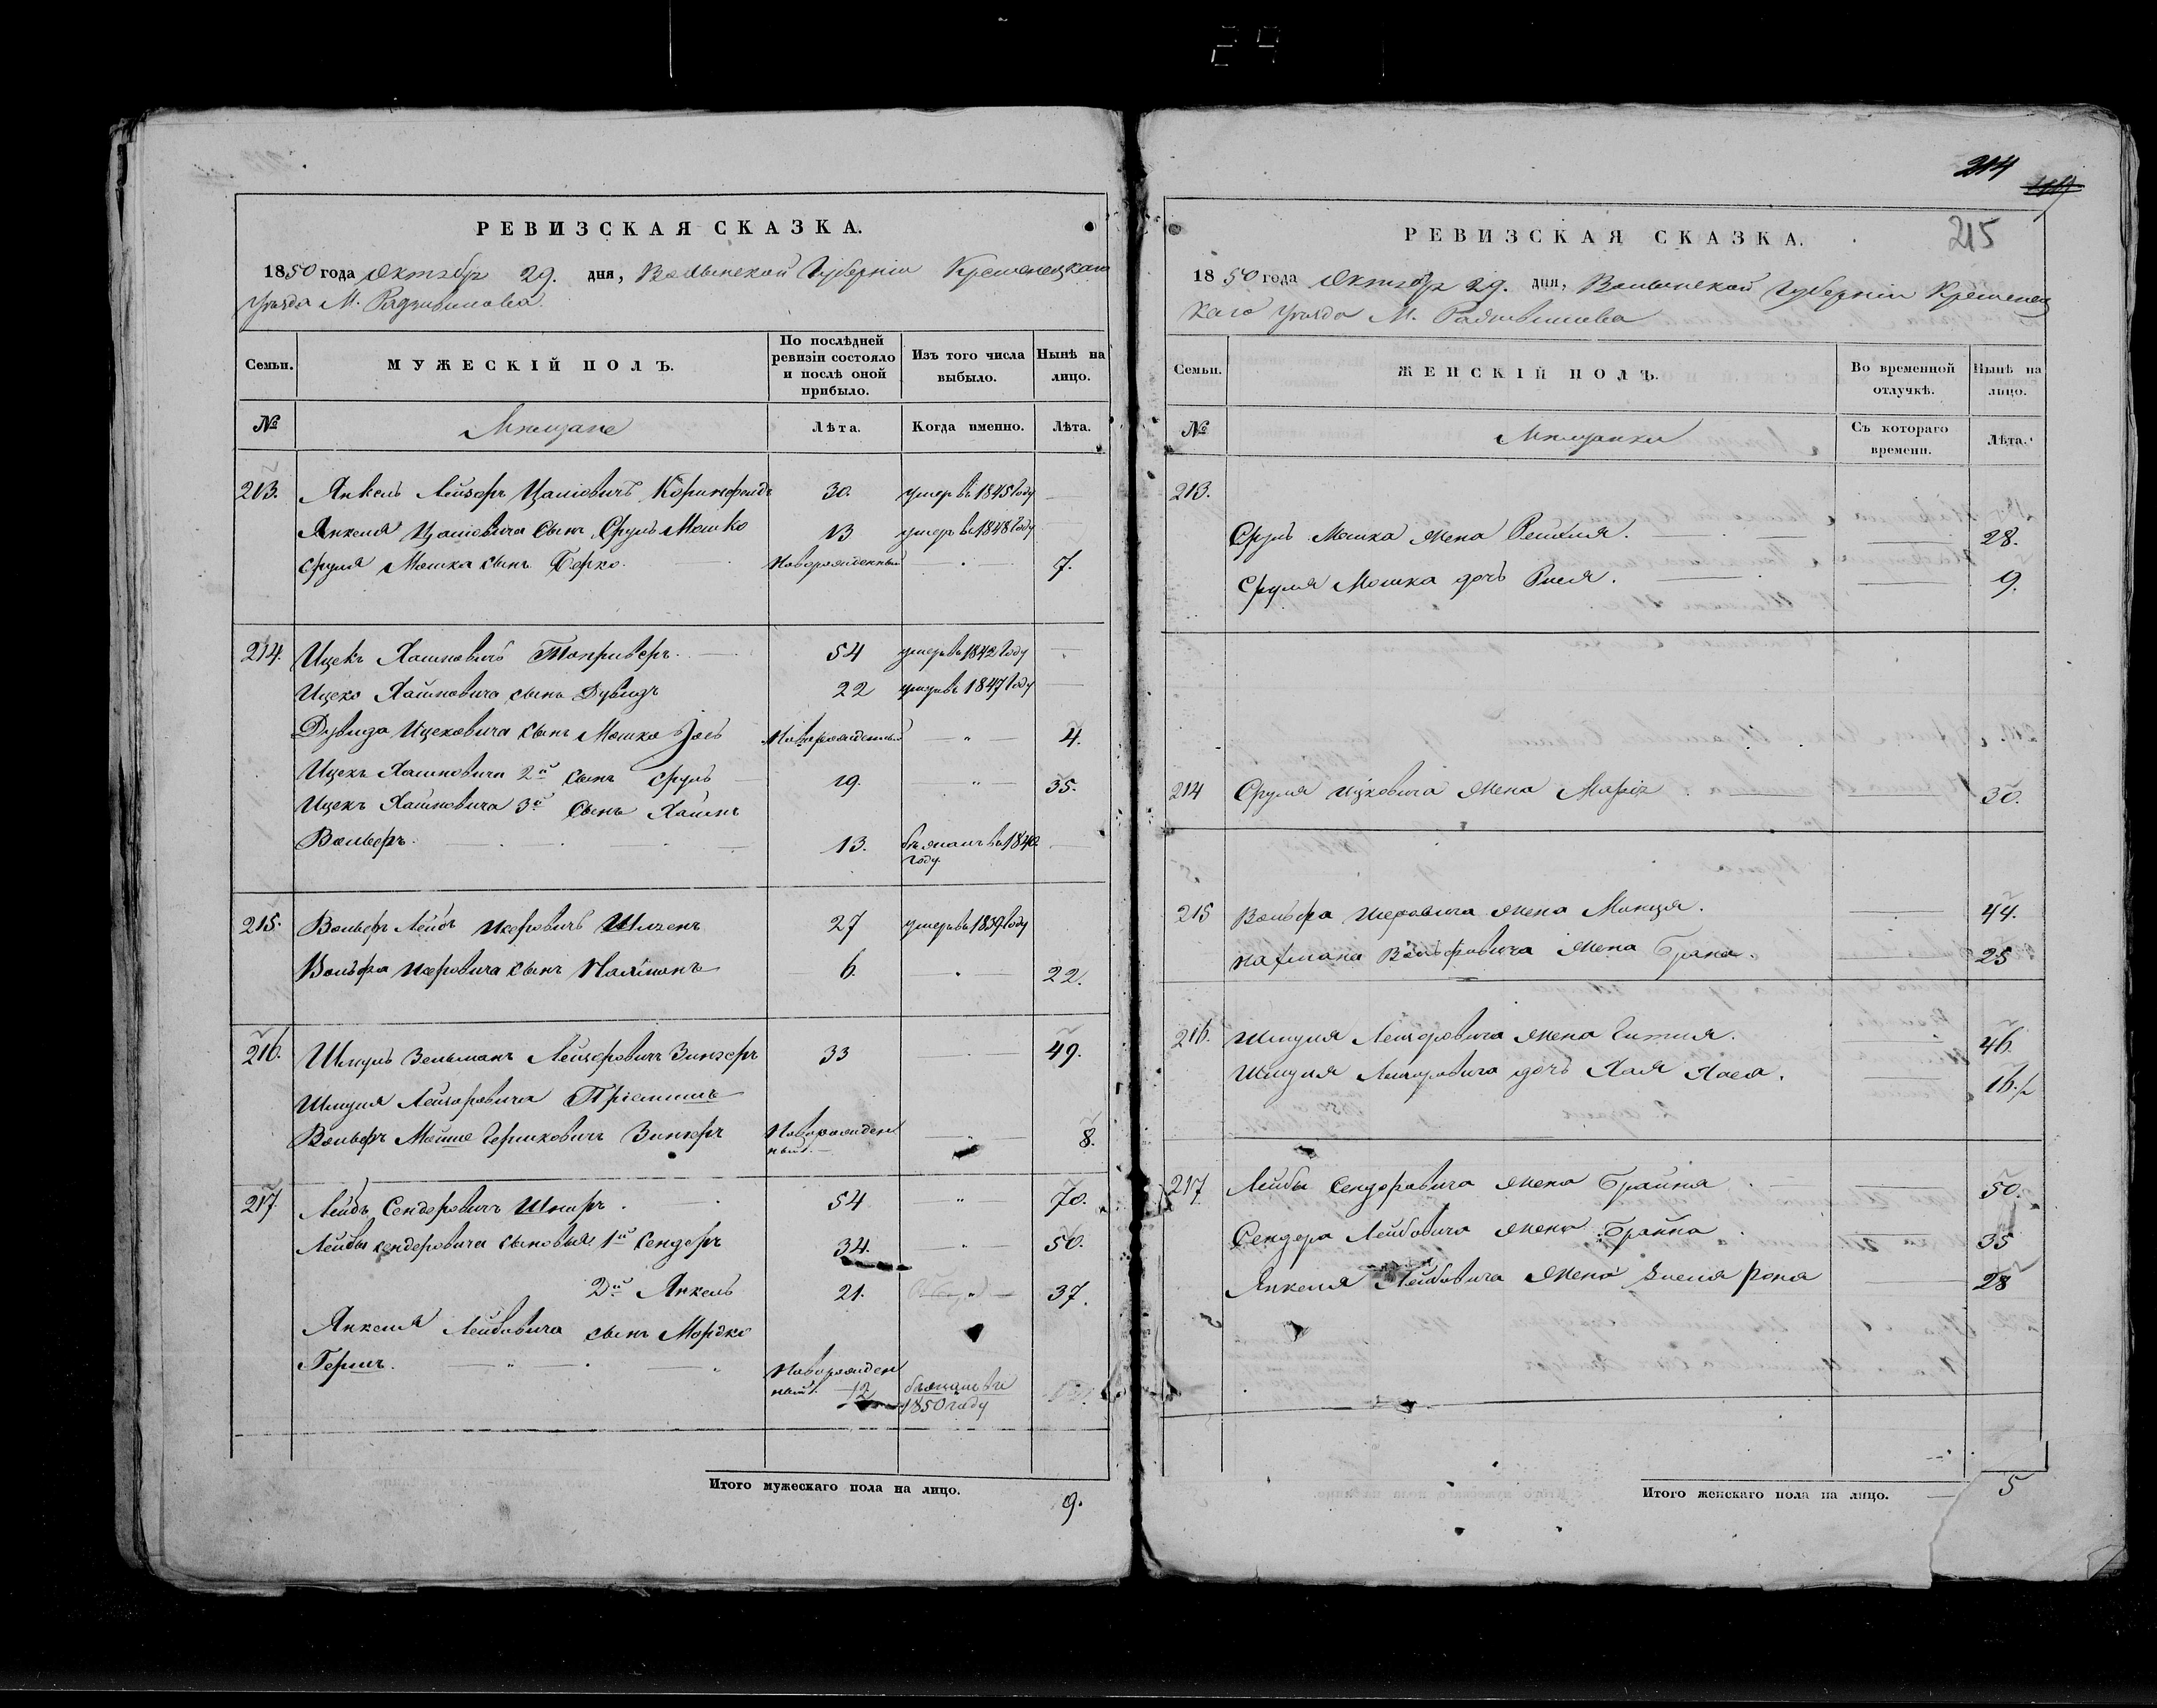 РЕВИЗСКАЯ СКАЗКА.
1850 года Октября 29. дня, Волынской Губерніи Кременецкаго
Уѣзда М. Радзивилова
Семьи. МУЖЕСКІЙ ПОЛЪ. По послѣдней ревизіи состояло и послѣ оной прибыло. Изъ того числа выбыло. Нынѣ на лицо.
№ Мѣщане Лѣта. Когда именно. Лѣта.
213. Янкель Лейзоръ 30. умеръ въ 1845 году
Янкеля сынъ Сруль Мошко 13 умеръ въ 1848 году
Сруля Мошка сынъ Берко. Новорожденный 7.
214. Ицекъ Хаимовичъ 54 умеръ въ 1842 году
Ицека Хаимовича сынъ Дувидъ 22 умеръ въ 1847 году
Дувида Ицековича сынъ Мошко Іосъ Новорожденный 4.
Ицека Хаимовича 2й сынъ Сруль 19. 35.
Ицека Хаимовича 3й сынъ Хаимъ
Вольфъ. 13. бѣжалъ въ 1840 году
215. Вольфъ Лейбъ 27 умеръ въ 1839 году
Вольфа сынъ Нахманъ 6. 22.
216. Шмуль Зельманъ Лейзеровичъ Зингеръ 33 49.
Шмуля Лейзеровича Пріемышъ
Вольфъ Мойше Гершковичъ Зингеръ Новорожденный. 8.
217. Лейбъ Сендеровичъ Шниръ. 54 70.
Лейбы Сендеровича сыновья 1й Сендеръ 34. 50.
2й Янкель 21. 37.
Янкеля Лейбовича сынъ Мордко
Гершъ. Новорожденный. 12 бѣжалъ въ 1850 году
Итого мужескаго пола на лицо. 9.
214
215
РЕВИЗСКАЯ СКАЗКА.
1850 года Октября 29. дня, Волынской Губерніи Кременец
каго Уѣзда М. Радзивилова
Семьи. ЖЕНСКІЙ ПОЛЪ. Во временной отлучкѣ. Нынѣ на лицо.
№ Мѣщанки Съ котораго времени. Лѣта.
213.
Сруль Мошка жена 28.
Сруля Мошка дочь 9.
214 Сруля Ицковича жена 30.
215 Вольфа жена 44.
Нахмана Вольфовича жена Брана. 25
216. Шмуля Лейзоровича жена Гитля. 46.
Шмуля Лейзоровича дочь Хая Хася. 16.
217. Лейбы Сендеровича жена Брайна 50.
Сендера Лейбовича жена Брайна 35
Янкеля Лейбовича жена 28
Итого женскаго пола на лицо. 5